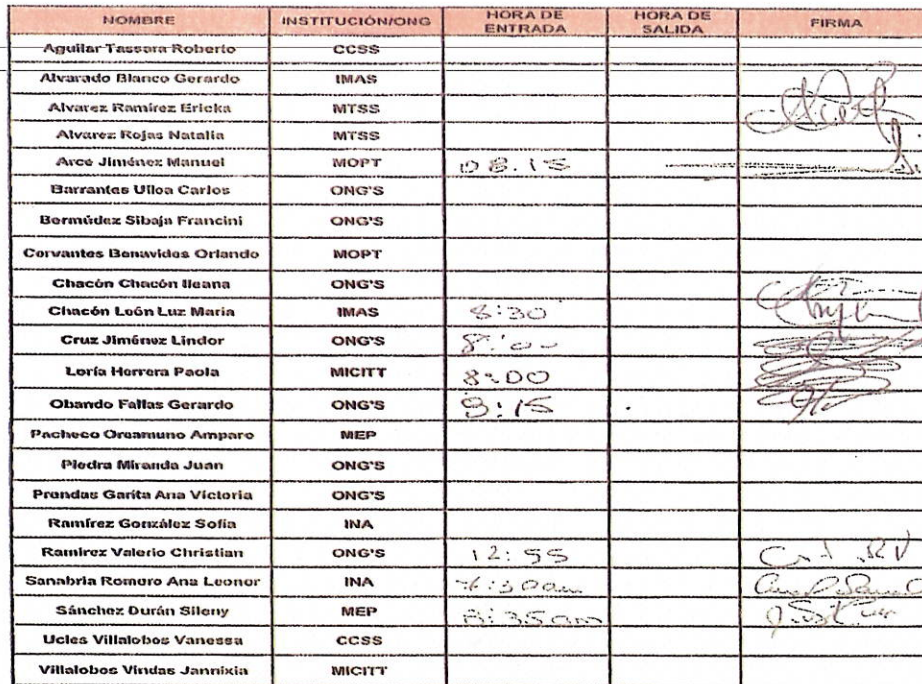 NOMBRE INSTITUCIÓN/ONG HORA DE ENTRADA HORA DE SALIDA FIRMA
Aguilar Tassara Roberto CCSS
Alvarado Blanco Gerardo IMAS
Alvarez Ramírez Ericka MTSS
Alvarez Rojas Natalia MTSS
Arce Jiménez Manuel MOPT 08:15
Barrantes Ulloa Carlos ONG'S
Bermúdez Sibaja Francini ONG'S
Cervantes Benavides Orlando MOPT
Chacón Chacón Ileana ONG'S
Chacón León Luz Maria IMAS 8:30
Cruz Jiménez Lindor ONG'S 8:00
Loría Herrera Paola MICITT 8:00
Obando Fallas Gerardo ONG'S 9:15
Pacheco Oreamuno Amparo MEP
Piedra Miranda Juan ONG'S
Prendas Garita Ana Victoria ONG'S
Ramírez González Sofía INA
Ramirez Valerio Christian ONG'S 12:55
Sanabria Romero Ana Leonor INA
Sánchez Durán Sileny MEP 8:35 am
Ucles Villalobos Vanessa CCSS
Villalobos Vindas Jannixia MICITT